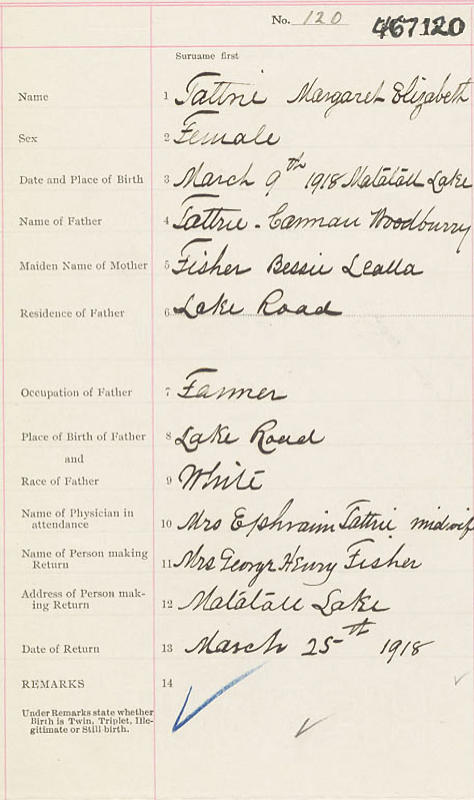 No. 120 467120
Surname first
Name 1 Tattrie Margaret Elizabeth
Sex 2 Female
Date and Place of Birth 3 March 9th 1918 Matatall Lake
Name of Father 4 Tattrie - Carman Woodburry
Maiden Name of Mother 5 Fisher Bessie Lealla
Residence of Father 6 Lake Road
Occupation of Father 7 Farmer
Place of Birth of Father 8 Lake Road
and
Race of Father 9 White
Name of Physician in
attendance 10 Mrs Ephraim Tattrie midwif
Name of Person making
Return 11 Mrs George Henry Fisher
Address of Person mak-
ing Return 12 Matatall Lake
Date of Return 13 March 25th 1918
REMARKS 14
Under Remarks state whether
Birth is Twin, Triplet, Ille-
gitimate or Still birth.